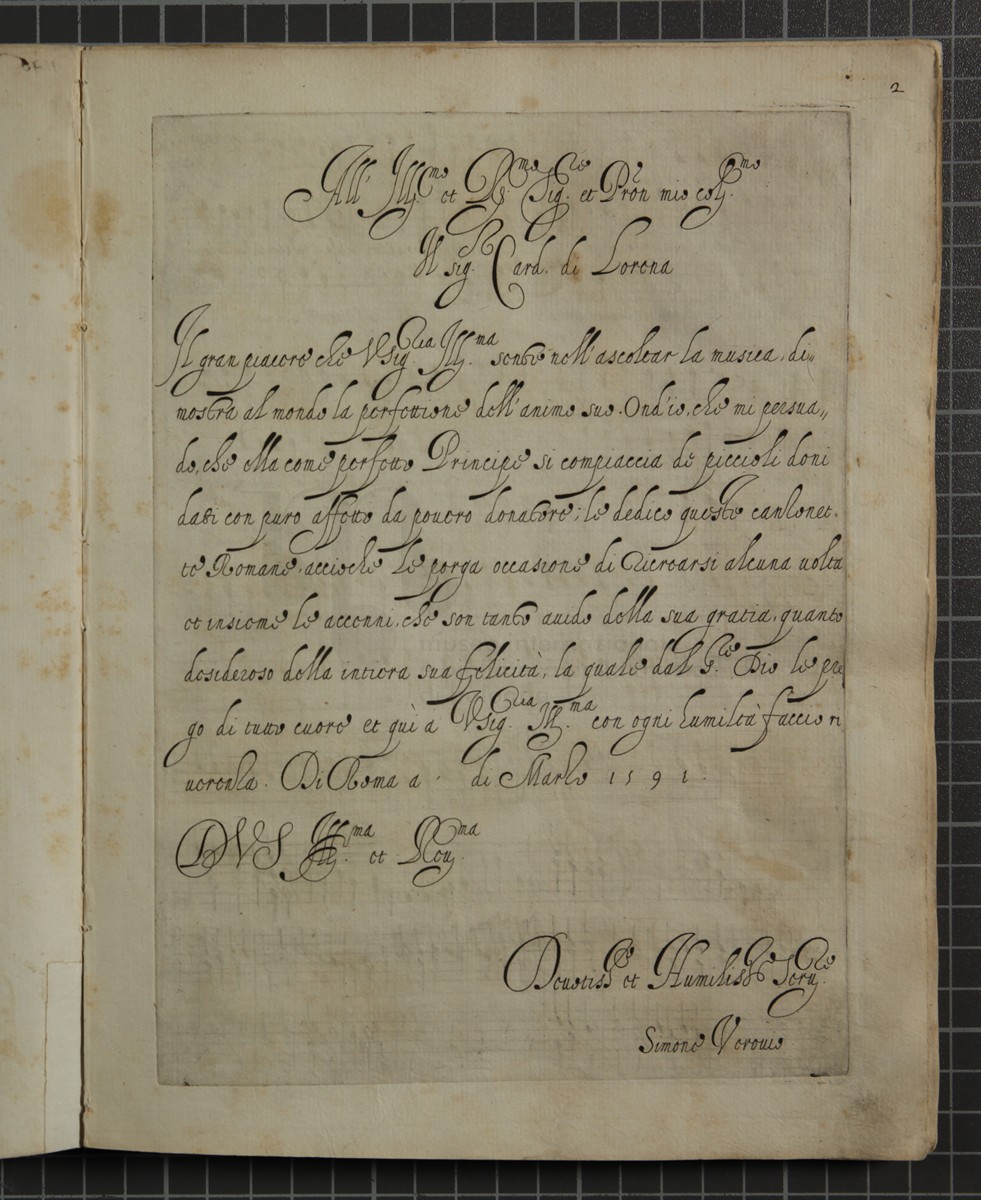 2
All' Ill.mo et R.mo Sig.re et Prõn mio col.mo
Il sig.r Card. di Lorena
Il gran piacere che VSig.ria Ill.ma sente nell'ascoltar la musica, di„
mostra al mondo la perfettione dell'animo suo. Ond'io, che mi persua„
do, che ella come perfetto Principe si compiaccia de piccioli doni
dati con puro affetto da pouero donatore; le dedico queste canzonet.
te Romane, accioche le porga occasione di ricrearsi alcuna uolta
et insieme le accenni, che son tanto auido della sua gratia, quanto
desideroso della intiera sua felicità, la quale dal S.re Dio le pre
go di tutto cuore et quì a VSig.ria Ill.ma con ogni humiltà faccio ri
uerenza. Di Roma a di Marzo 1591.
D VS Ill.ma et Reu.ma
Deuotiss.o et Humiliss.o Seru.re
Simone Verouio